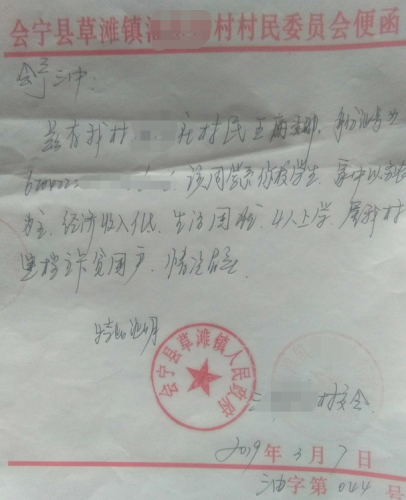 会宁县草滩镇 村村民委员会便函
会宁三中:
兹有我村 社村民王 身份证号为
该同学系你校学生,家中以农
为主,经济收入低,生活困难,4人上学,属我村
建档立卡贫困户,情况属
特此证明
会宁县草滩镇人民政府
村委会
2019年3月7日
字第044号